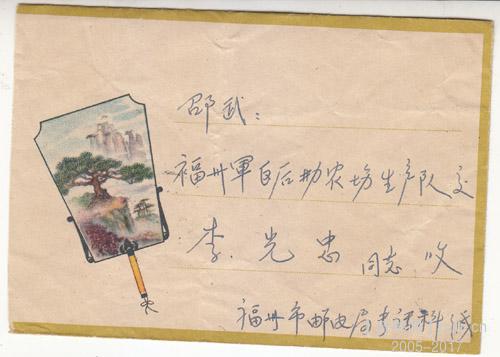 邵武:
福州軍区后勤农场生产队交
李光忠 同志 收
福州市邮电局 科缄
2005-2017